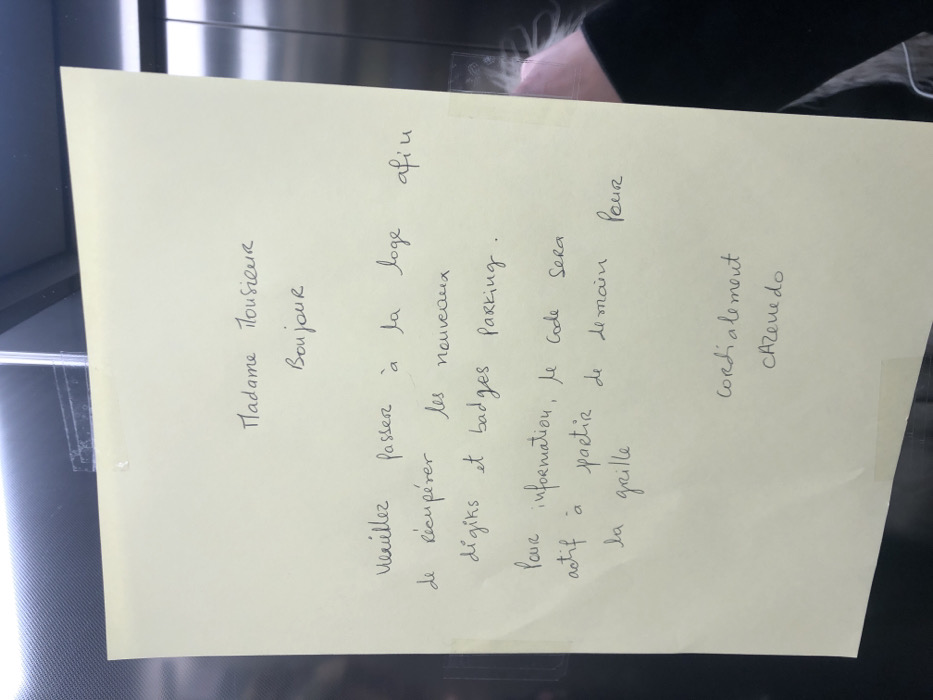 Madame Monsieur
Bonjour
Veuillez passer à la loge afin
de récupérer les nouveaux
digiks et badges Parking.
Pour information, le code sera
actif à partir de demain Pour
la grille
Cordialement
CAZevedo